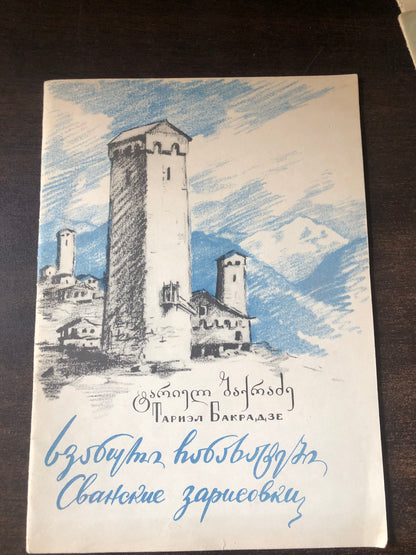 ტარიელ ბაქრაძე
Тариэл Бакрадзе
სვანური ჩანახატები
Сванские зарисовки